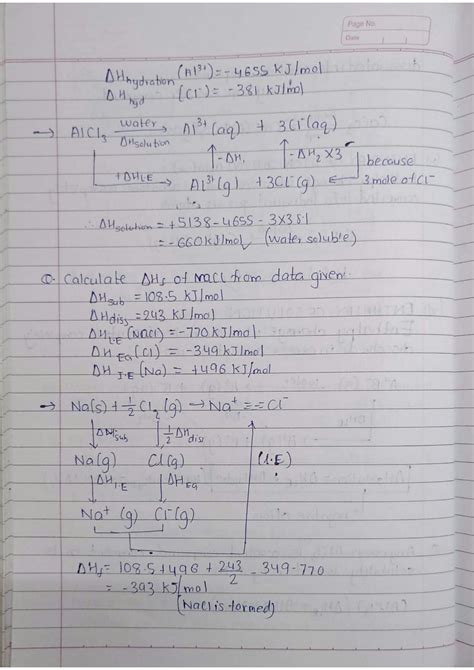 Page No.
Date
ΔHhydration (Al³⁺) = -4655 KJ/mol
ΔHhyd (Cl⁻) = -381 KJ/mol
→ AlCl₃ water/ΔHsolution → Al³⁺(aq) + 3Cl⁻(aq)
↑-ΔH₁ ↑-ΔH₂×3 because
+ΔHLE → Al³⁺(g) + 3Cl⁻(g) ← 3 mole of Cl⁻
∴ ΔHsolution = +5138-4655-3×381
= -660KJ/mol (water soluble)
Q. Calculate ΔHf of NaCl from data given.
ΔHsub = 108.5 KJ/mol
ΔHdiss = 243 KJ/mol
ΔHL.E (NaCl) = -770 KJ/mol
ΔHEa (Cl) = -349 KJ/mol
ΔHI.E (Na) = +496 KJ/mol
→ Na(s) + ½Cl₂(g) → Na⁺ == Cl⁻
↓ΔHsub ↓½ΔHdiss
Na(g) Cl(g) (L.E)
↓ΔHI.E ↓ΔHEa
Na⁺(g) Cl⁻(g)
ΔHf = 108.5+496+243/2-349-770
= -393 KJ/mol
(NaCl is formed)